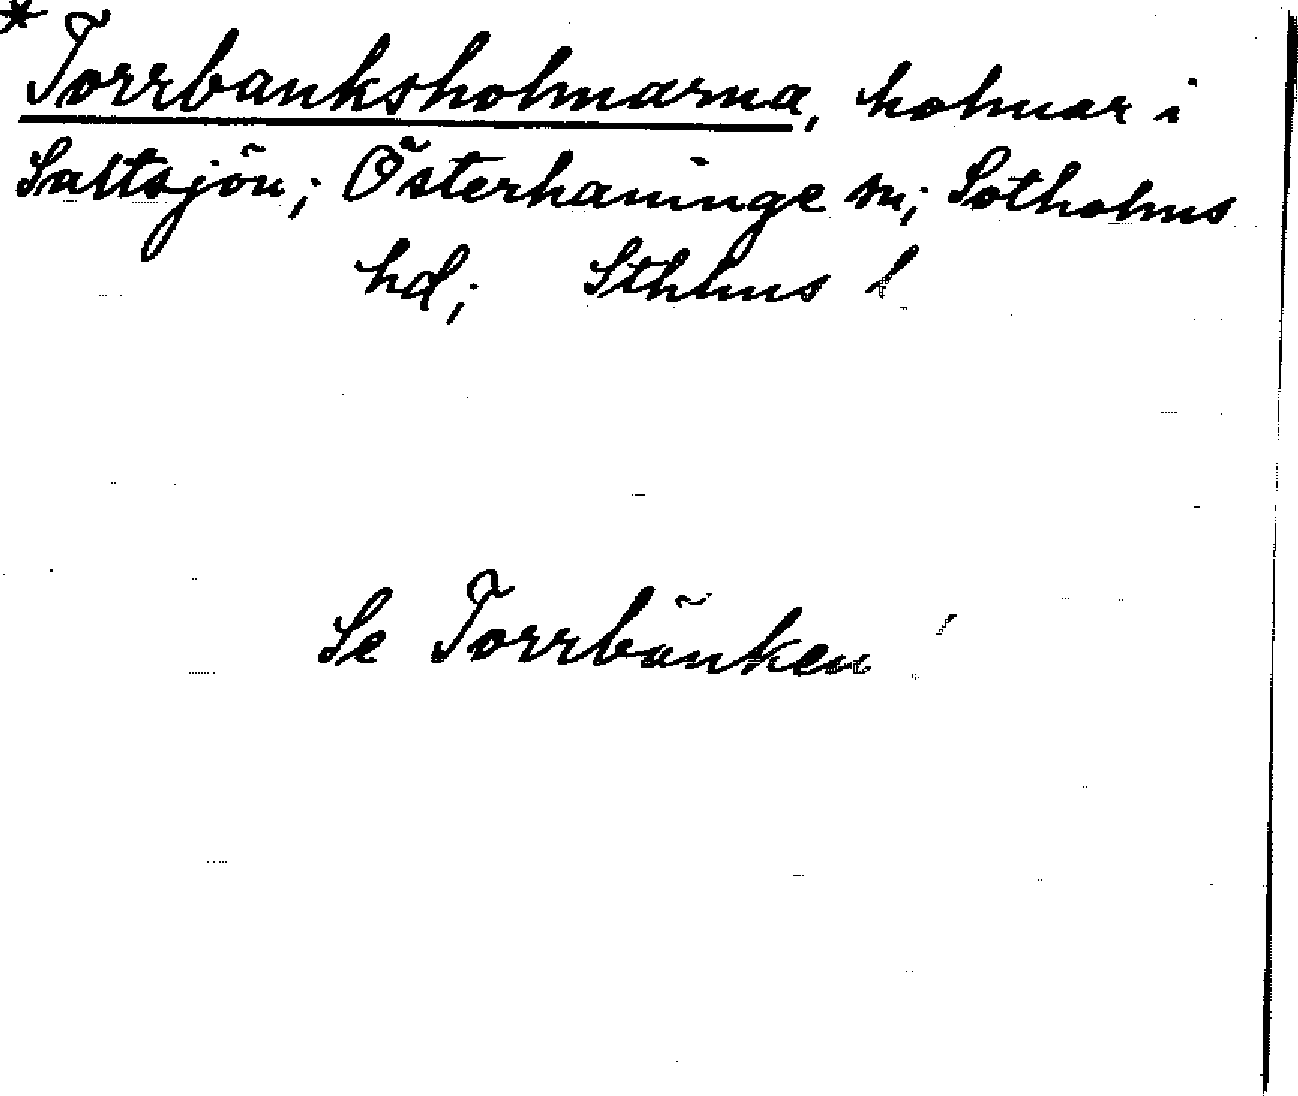 * Torrbanksholmarna, holmar i
Saltsjön; Österhaninge sn; Sotholms
hd; Sthlms l
Se Torrbänken!